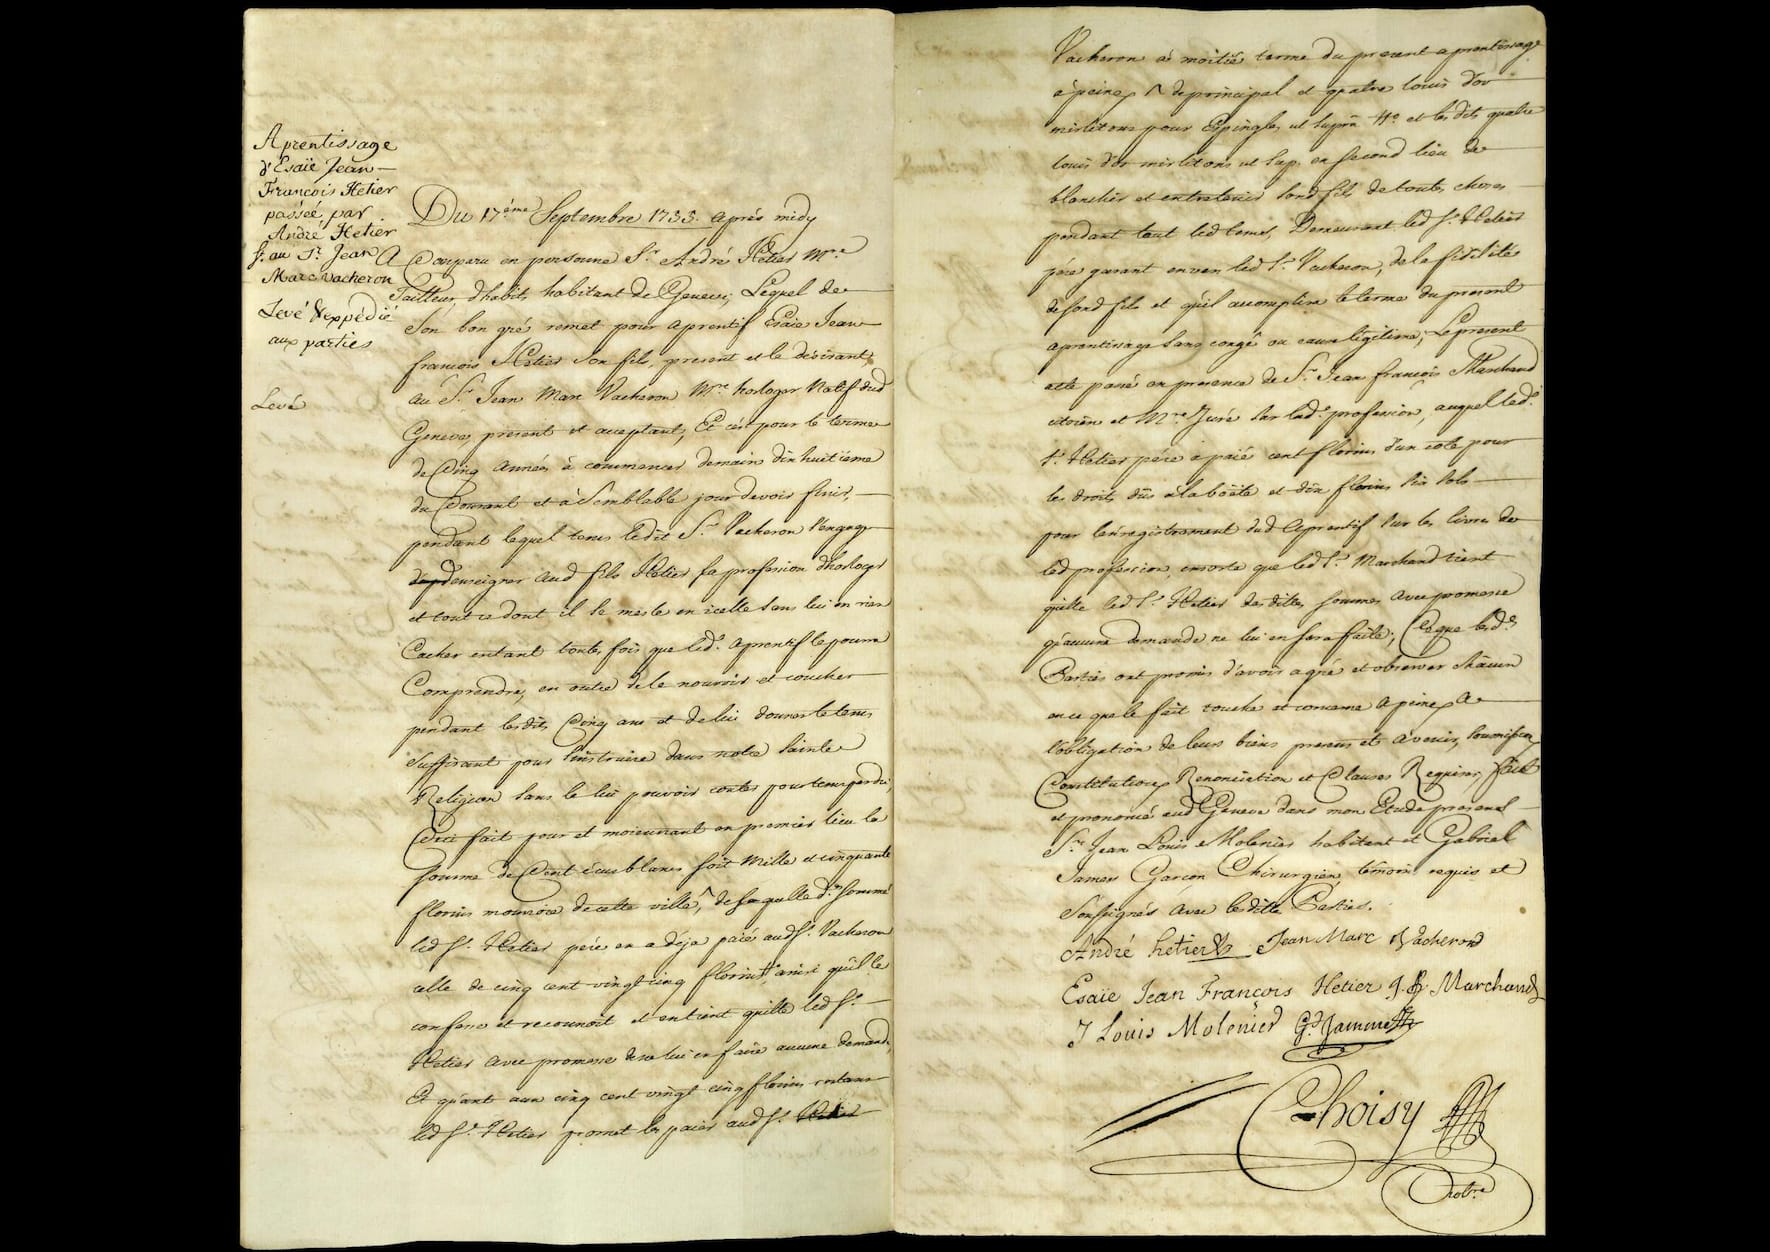 Aprentissage
d'Esaïe Jean
François Hetier
passée par
André Hetier
Sr. au Sr. Jean
Marc Vacheron
Levé & expédié
aux parties
Levé
Du 17éme Septembre 1733. après midy
A Comparu en personne Sr. André Hetier Mre.
Tailleur d'habits habitant de Geneve, Lequel de
Son bon gré remet pour aprentif Esaïe Jean
françois Hetier son fils, present et le désirant,
au Sr. Jean Marc Vacheron Mre. horloger Natif dud
Geneve, present et acceptant, Et c'est pour le terme
de Cinq Années à commencer demain dix huitiéme
du Courant et à Semblable jour devoir finir,
pendant lequel tems ledit Sr. Vacheron s'engage
d'enseigner aud fils Hetier sa profession d'horloger
et tout ce dont il se mesle en icelle sans lui en rien
Cacher entant toutes fois que led. aprentif le pourra
Comprendre, en outre de le nourrir et coucher
pendant lesdits Cinq ans et de lui donner le tems
Suffisant pour s'instruire dans notre Sainte
Religion sans le lui pouvoir conter pour tems perdu,
Ceci fait pour et moiennant en premier lieu la
Somme de Cent écus blancs soit Mille et cinquante
florins monnoie de cette ville, ^ de laquelle d. somme
led Sr. Hetier pére en a déja paié aud Sr. Vacheron
celle de cinq cent vingt cinq florins ainsi qu'il le
confesse et reconnoit et en tient quitte led Sr.
Hetier avec promesse de ne lui en faire aucune demande,
Et quant aux cinq cent vingt cinq florins restans
led Sr. Hetier promet les paier aud Sr.
Vacheron à moitié terme du present aprentissage
à peine, ^ de principal et quatre louis d'or
mirlitons pour Epingles ut supra et lesdits quatre
louis d'or mirlitons ut sup. en second lieu de
blanchir et entretenir sond fils de toutes choses
pendant tout led tems, Demeurant led Sr. Hetier
pére garant envers led Sr. Vacheron, de la fidélité
de sond fils et qu'il accomplira le terme du present
aprentissage sans congé ou cause légitime, Le present
acte passé en presence de Sr. Jean françois Marchand
citoïen et Mre. Juré sur lad. profession, auquel led.
Sr. Hetier pére a paié cent florins d'un coté pour
les droits dûs à la boëte et dix florins six sols
pour l'enregistrement dud Aprentif sur les livres de
lad profession, ensorte que led Sr. Marchand tient
quitte led Sr. Hetier desdittes sommes avec promesse
qu'aucune demande ne lui en sera faite; Ce que lesd.
Parties ont promis d'avoir agré et observer châcun
en ce que le fait touche et concerne à peine, à
l'obligation de leurs biens presens et à venir, soumission,
Constitution, Renonciation et Clauses Requises, fait
et prononcé aud Geneve dans mon Etude presens
Srs. Jean Louis Molenier habitant et Gabriel
James Garçon Chirurgien témoins requis et
Soussignés avec lesdittes Parties.
André hetier Jean Marc Vacheron
Esaïe Jean François Hetier J. F. Marchand
J Louis Molenier Gl. Jammes
Choisy
Notre.